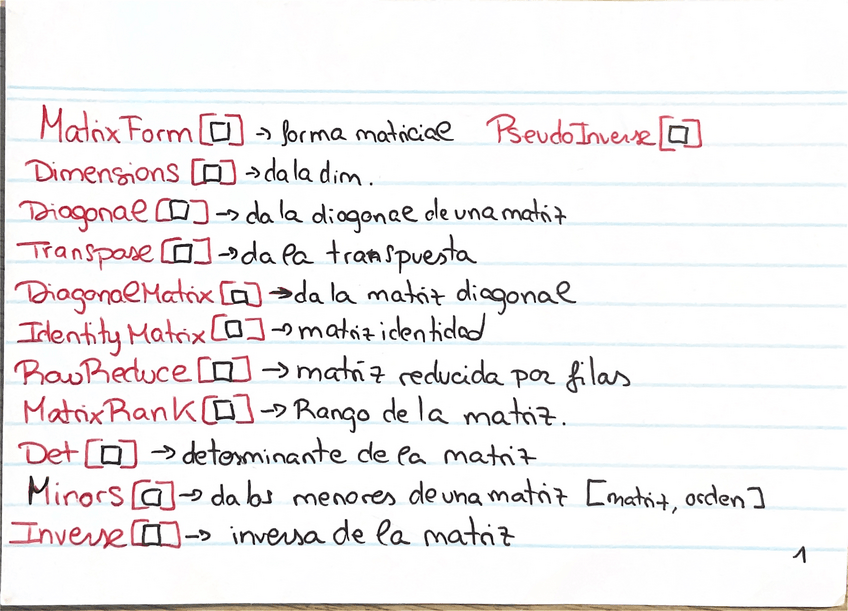 MatrixForm[□] → forma matricial PseudoInverse[□]
Dimensions [□] → da la dim.
Diagonal [□] → da la diagonal de una matriz
Transpose [□] → da la transpuesta
DiagonalMatrix [□] → da la matriz diagonal
IdentityMatrix [□] → matriz identidad
RowReduce [□] → matriz reducida por filas
MatrixRank [□] → Rango de la matriz.
Det [□] → determinante de la matriz
Minors [□] → da los menores de una matriz [matriz, orden]
Inverse [□] → inversa de la matriz
1